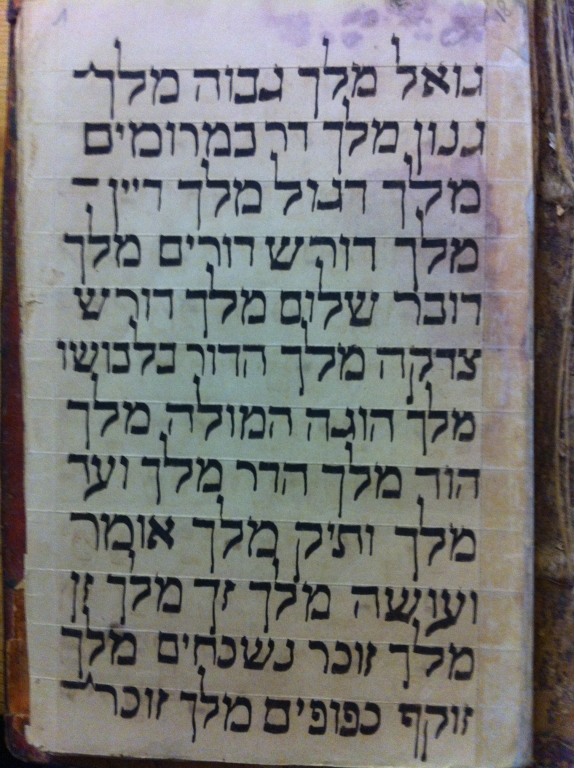 גואל מלך גבוה מלך
גנון מלך דר במרומים
מלך דגול מלך דיין
מלך דורש דורים מלך
דובר שלום מלך דורש
צדקה מלך הדור בלבושו
מלך הוגה המולה מלך
הוד מלך הדר מלך ועד
מלך ותיק מלך אומר
ועושה מלך זך מלך זן
מלך זוכר נשכחים מלך
זוקף כפופים מלך זוכר